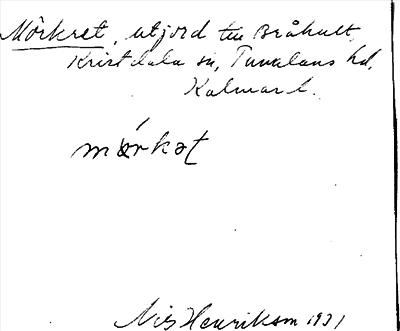 Mörkret, utjord till Bråhult,
Kristdala sn, Tunaläns hd,
Kalmar l.
mörkət
Nils Henriksson 1931